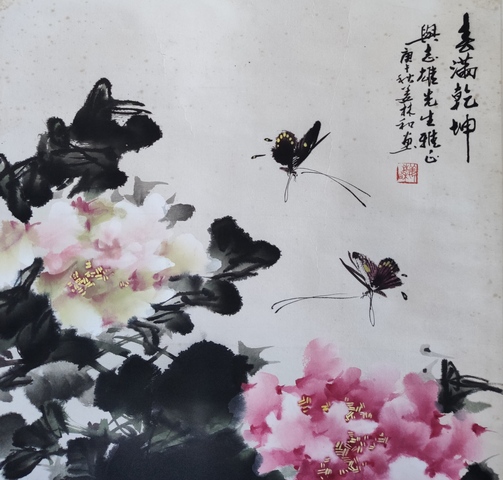 春滿乾坤
與志雄先生雅正
庚午秋姜林和畫